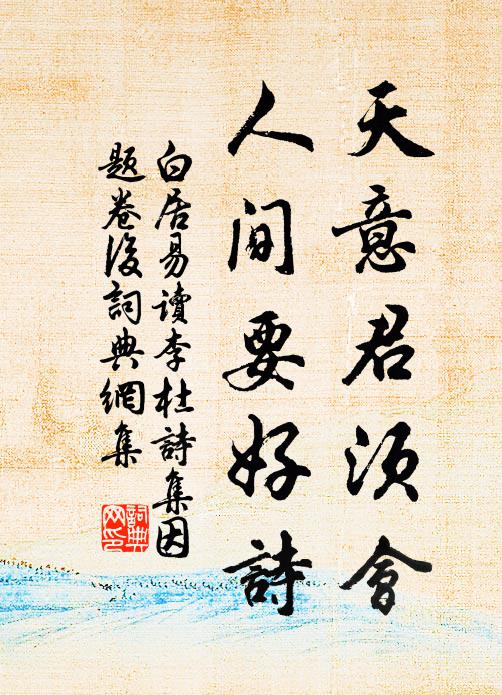 天意君須會
人間要好詩
白居易讀李杜詩集因
題卷後詞典網集
詞典
网印